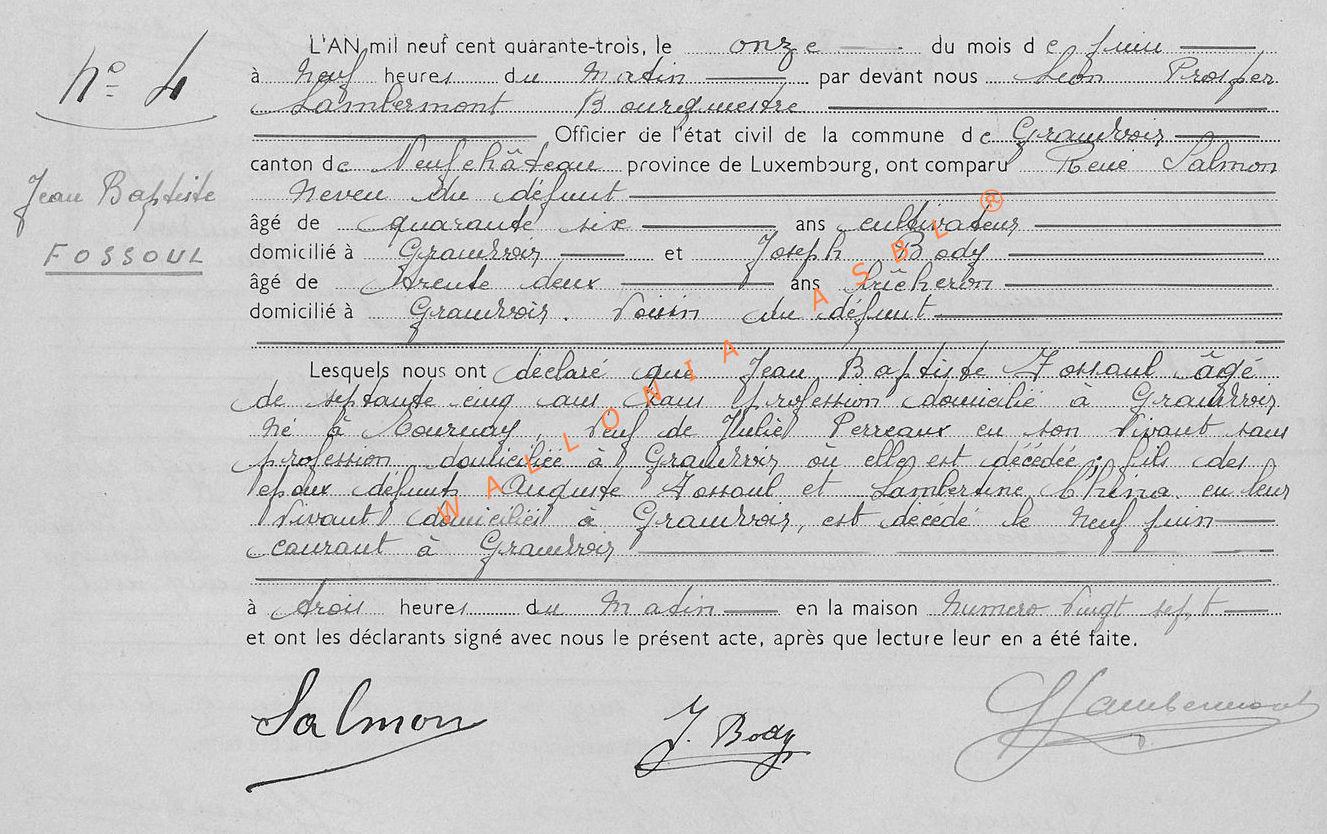 N° 4
Jean Baptiste
FOSSOUL
L'AN mil neuf cent quarante-trois, le onze du mois de juin
à Neuf heures du Matin par devant nous Léon Prosper
Lambermont Bourgmestre
Officier de l'état civil de la commune de Grandvoir
canton de Neufchâteau province de Luxembourg, ont comparu René Salmon
Neveu du défunt
âgé de quarante six ans cultivateur
domicilié à Grandvoir et Joseph Body
âgé de trente deux ans bûcheron
domicilié à Grandvoir. Voisin du défunt
Lesquels nous ont déclaré que Jean Baptiste Fossoul âgé
de septante cinq ans, sans profession domicilié à Grandvoir
né à Tournay, Veuf de Julie Perreaux en son vivant sans
profession domiciliée à Grandvoir où elle est décédée; fils des
époux défunts Auguste Fossoul et Lambertine China en leur
Vivant domiciliés à Grandvoir, est décédé le neuf juin
courant à Grandvoir
à trois heures du Matin en la maison numéro vingt sept
et ont les déclarants signé avec nous le présent acte, après que lecture leur en a été faite.
Salmon J. Body Lambermont
WALLONIA ASBL ®